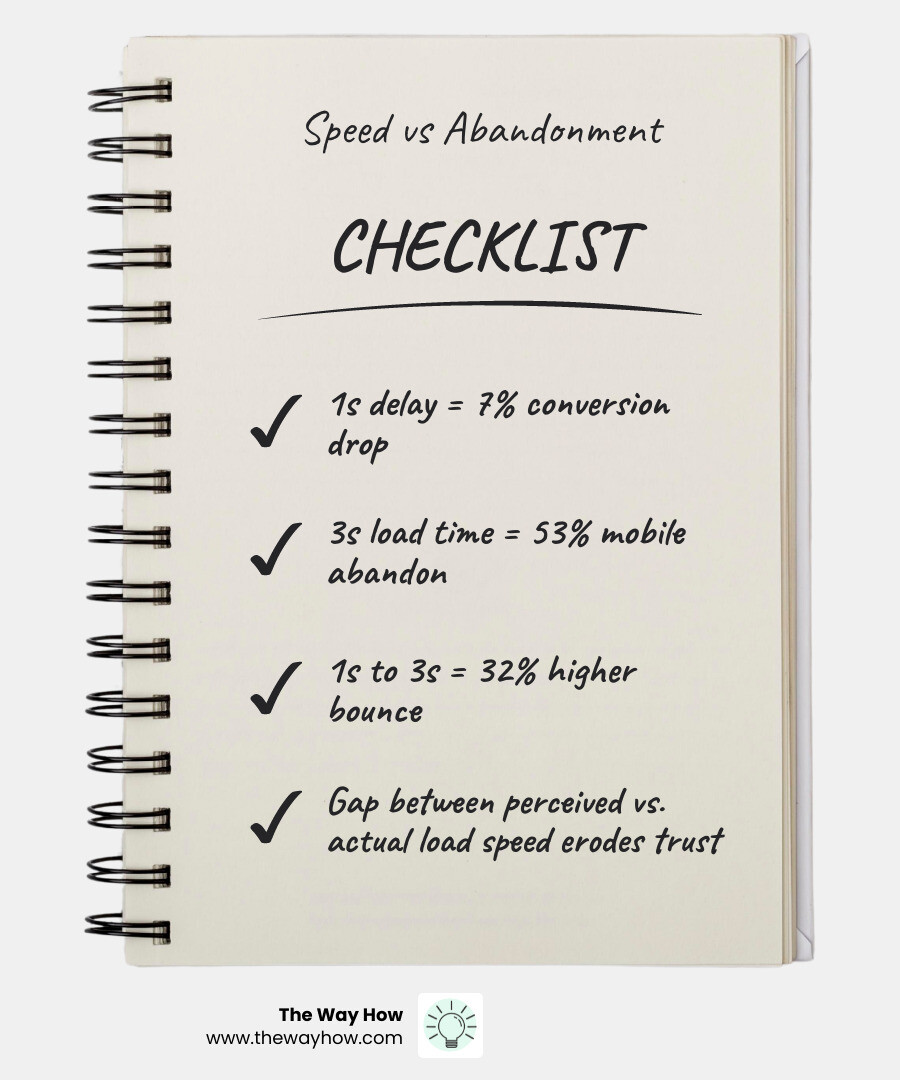 Speed vs Abandonment
CHECKLIST
1s delay = 7% conversion
drop
3s load time = 53% mobile
abandon
1s to 3s = 32% higher
bounce
Gap between perceived vs.
actual load speed erodes trust
The Way How
www.thewayhow.com